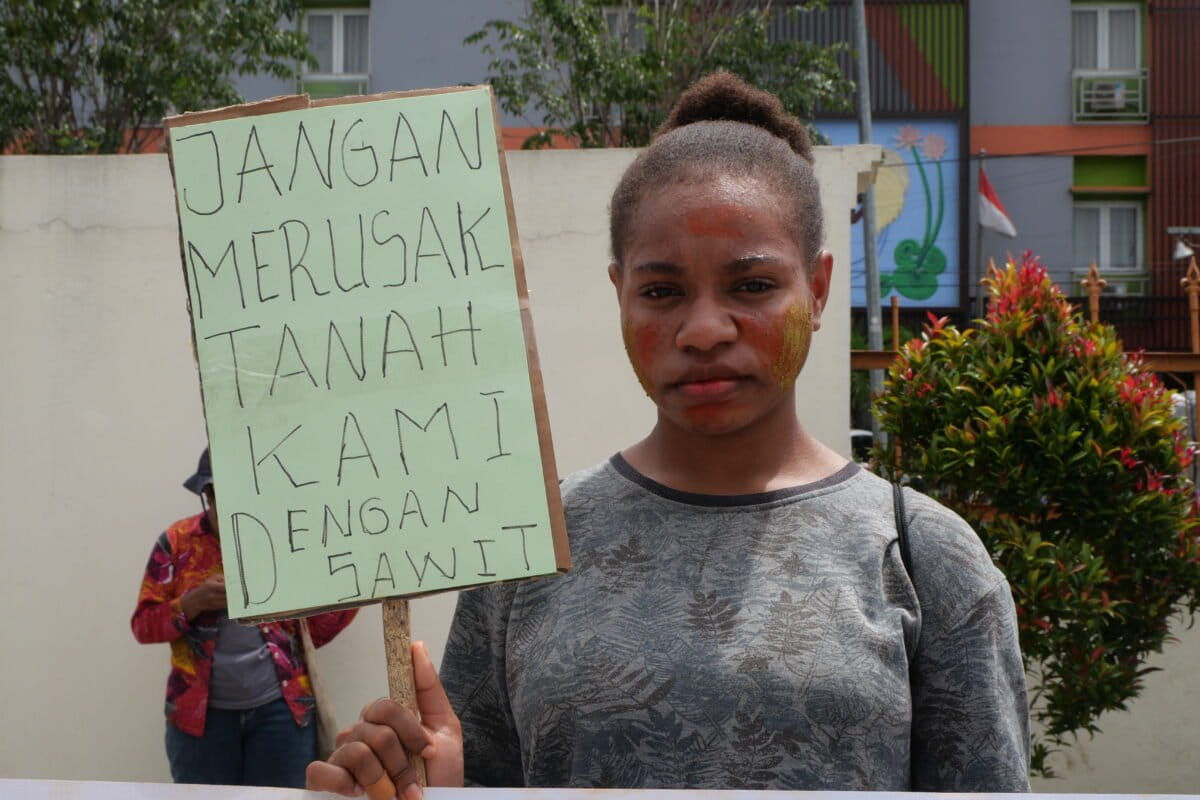 JANGAN
MERUSAK
TANAH
KAMI
DENGAN
SAWIT